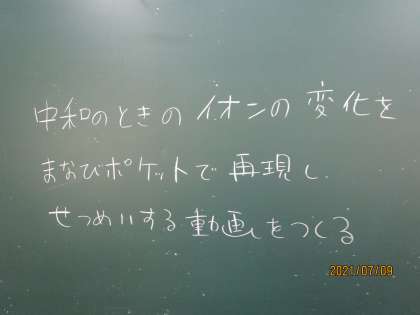 中和のときの イオンの 変化を
まなびポケットで 再現し
せつめいする 動画をつくる
2021/07/09